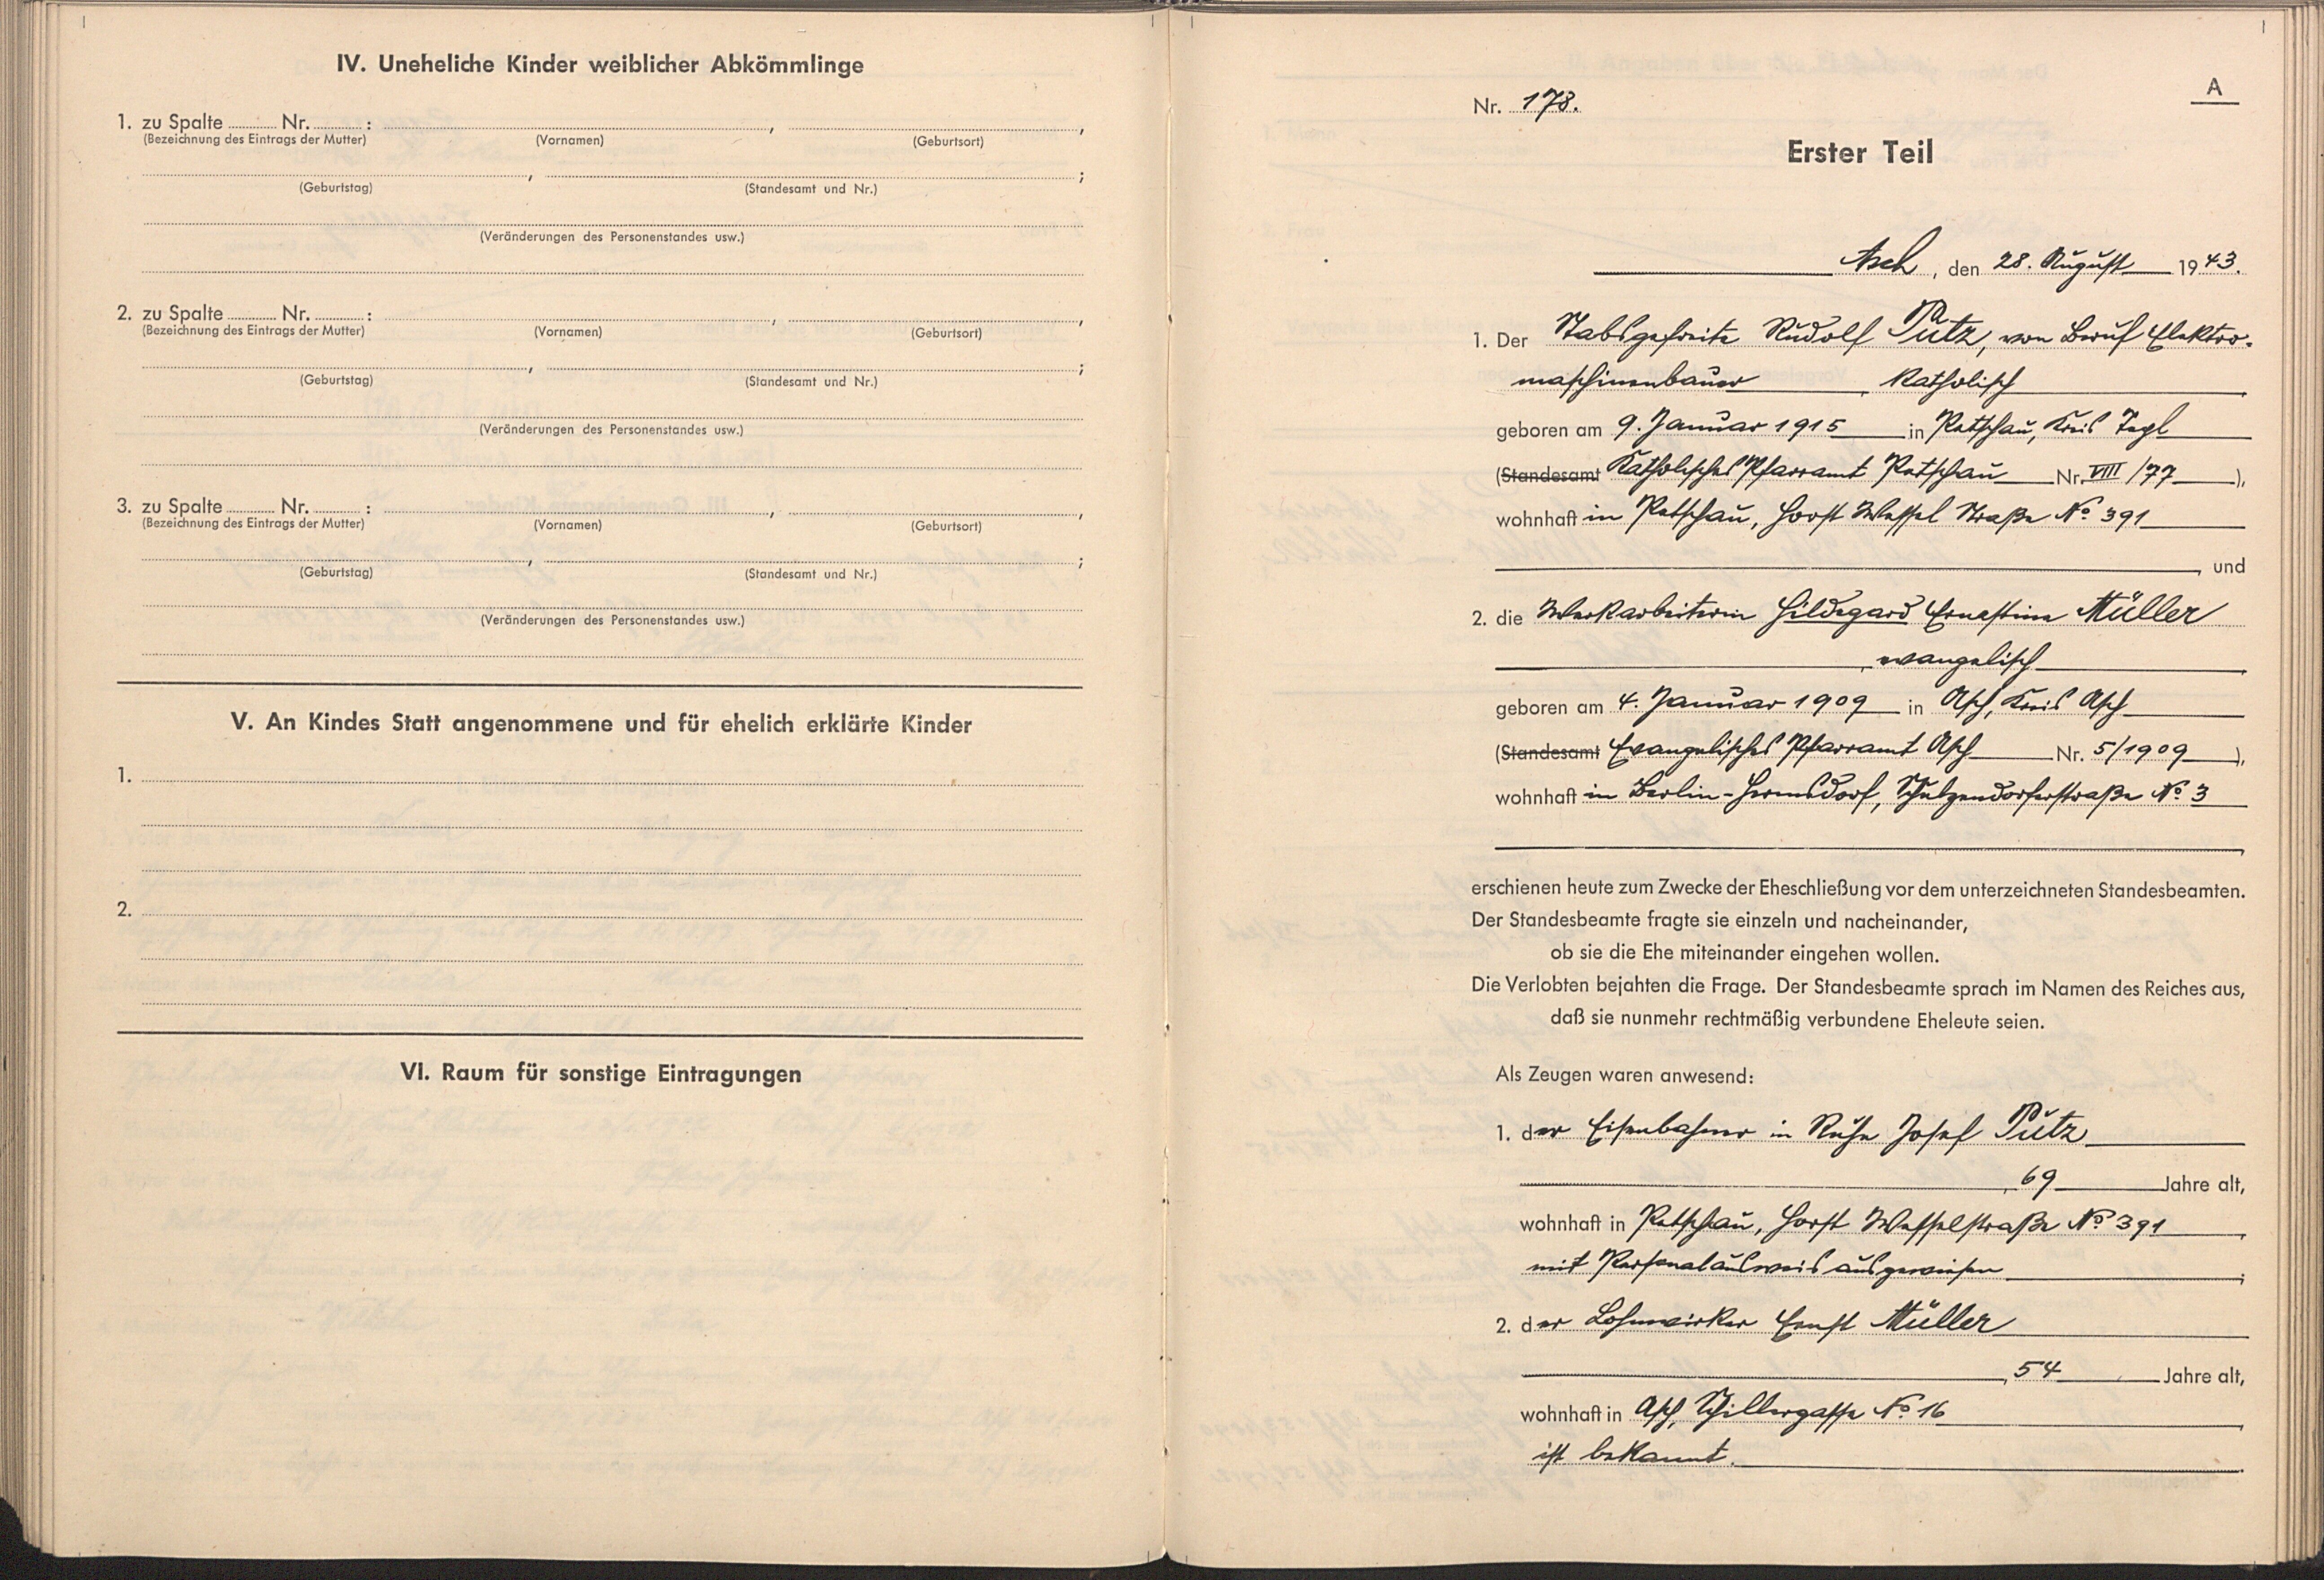 IV. Uneheliche Kinder weiblicher Abkömmlinge
1. zu Spalte ........ Nr. ........ : ........ , ........ ,
(Bezeichnung des Eintrags der Mutter) (Vornamen) (Geburtsort)
........ , ........ ;
(Geburtstag) (Standesamt und Nr.)
(Veränderungen des Personenstandes usw.)
2. zu Spalte ........ Nr. ........ : ........ , ........ ,
(Bezeichnung des Eintrags der Mutter) (Vornamen) (Geburtsort)
........ , ........ ;
(Geburtstag) (Standesamt und Nr.)
(Veränderungen des Personenstandes usw.)
3. zu Spalte ........ Nr. ........ : ........ , ........ ,
(Bezeichnung des Eintrags der Mutter) (Vornamen) (Geburtsort)
........ , ........ ;
(Geburtstag) (Standesamt und Nr.)
(Veränderungen des Personenstandes usw.)
V. An Kindes Statt angenommene und für ehelich erklärte Kinder
1.
2.
VI. Raum für sonstige Eintragungen
A
Nr. 178.
Erster Teil
Asch, den 28. August 1943.
1. Der Stabsgefreite Rudolf Putz, von Beruf Elektro-
maschinenbauer, katholisch
geboren am 9. Januar 1915 in Petschau, Kreis Tepl
(Standesamt Katholisches Pfarramt Petschau Nr. VIII/77),
wohnhaft in Petschau, Horst Wessel Straße No 391
, und
2. die Werkarbeiterin Hildegard Ernestine Müller
, evangelisch
geboren am 4. Januar 1909 in Asch, Kreis Asch
(Standesamt Evangelisches Pfarramt Asch Nr. 5/1909),
wohnhaft in Berlin-Hermsdorf, Schulzendorferstraße No 3
,
erschienen heute zum Zwecke der Eheschließung vor dem unterzeichneten Standesbeamten.
Der Standesbeamte fragte sie einzeln und nacheinander,
ob sie die Ehe miteinander eingehen wollen.
Die Verlobten bejahten die Frage. Der Standesbeamte sprach im Namen des Reiches aus,
daß sie nunmehr rechtmäßig verbundene Eheleute seien.
Als Zeugen waren anwesend:
1. der Eisenbahner in Ruhe Josef Putz
, 69 Jahre alt,
wohnhaft in Petschau, Horst Wesselstraße No 391,
mit Personalausweis ausgewiesen;
2. der Lohnwirker Ernst Müller
, 54 Jahre alt,
wohnhaft in Asch, Schillergasse No 16,
ist bekannt.